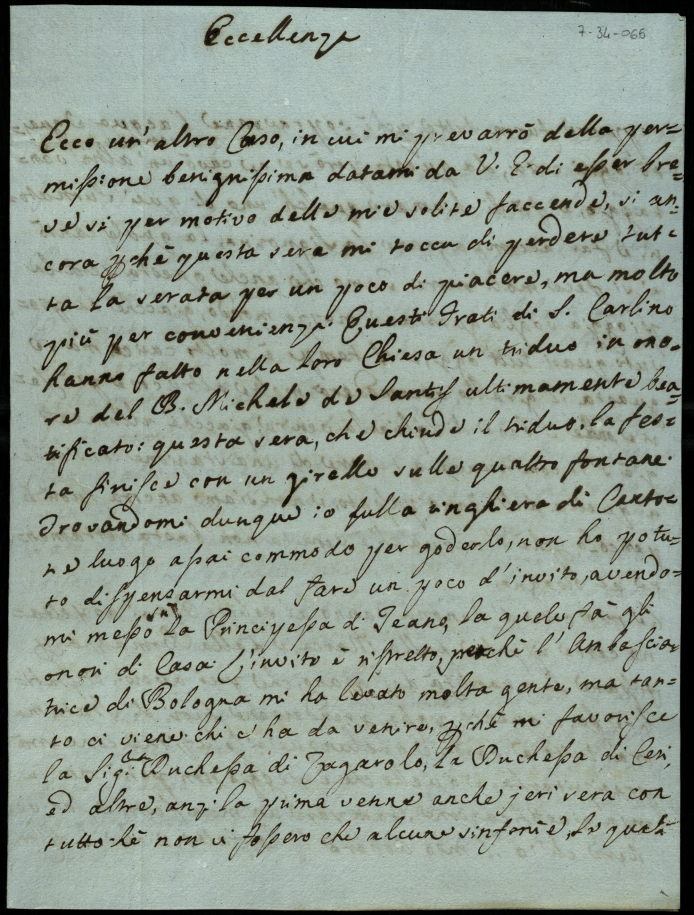 7-34-066
Eccellenza
Ecco un'altro Caso, in cui mi prevarrò della per=
missione benignissima datami da V. E. di esser bre=
ve si per motivo delle mie solite faccende, si an=
cora pchè questa sera mi tocca di perdere tut=
ta la serata per un poco di piacere, ma molto
più per convenienza. Questi Frati di S. Carlino
hanno fatto nella loro Chiesa un triduo in ono=
re del B. Michele de Santis ultimamente bea=
tificato: questa sera, che chiude il triduo, la fes=
ta finisce con un girello sulle quattro fontane.
Trovandomi dunque io sulla ringhiera di Canto=
ne luogo assai commodo per goderlo, non ho potu=
to dispensarmi dal fare un poco d'invito, avendo=
mi messo la Principessa di Teano, la quale fà gli
onori di Casa. L'invito è ristretto, perchè l'Ambascia=
trice di Bologna mi ha levato molta gente, ma tan=
to ci viene chi c'ha da venire, pchè mi favorisce
la Sig.ra Duchessa di Zagarolo, la Duchessa di Ceri,
ed altre, anzi la prima venne anche jeri sera con
tutto chè non vi fossero che alcune sinfonie, le quali